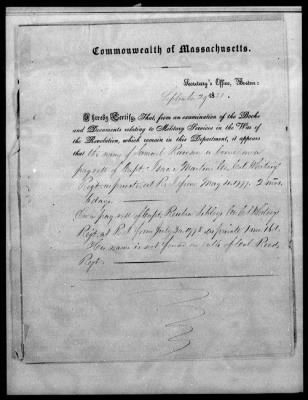 Commonwealth of Massachusetts.
Secretary's Office, Boston:
18
I hereby Certify, That, from an examination of the Books
and Documents relating to Military Services in the War of
the Revolution, which remain in this Department, it appears
that the name of Samuel is borne on a
pay roll of Capt. Isaac Martin's Co. Col.
Regt. as private at R.I. from May 10. 1777. 2 mos.
days.
On a pay roll of Capt. Reuben Sibleys Co. Col.
Regt. at R.I. from July 1778 as private 1 mo. 16 d.
His name is not found on rolls of Col.
Regt.